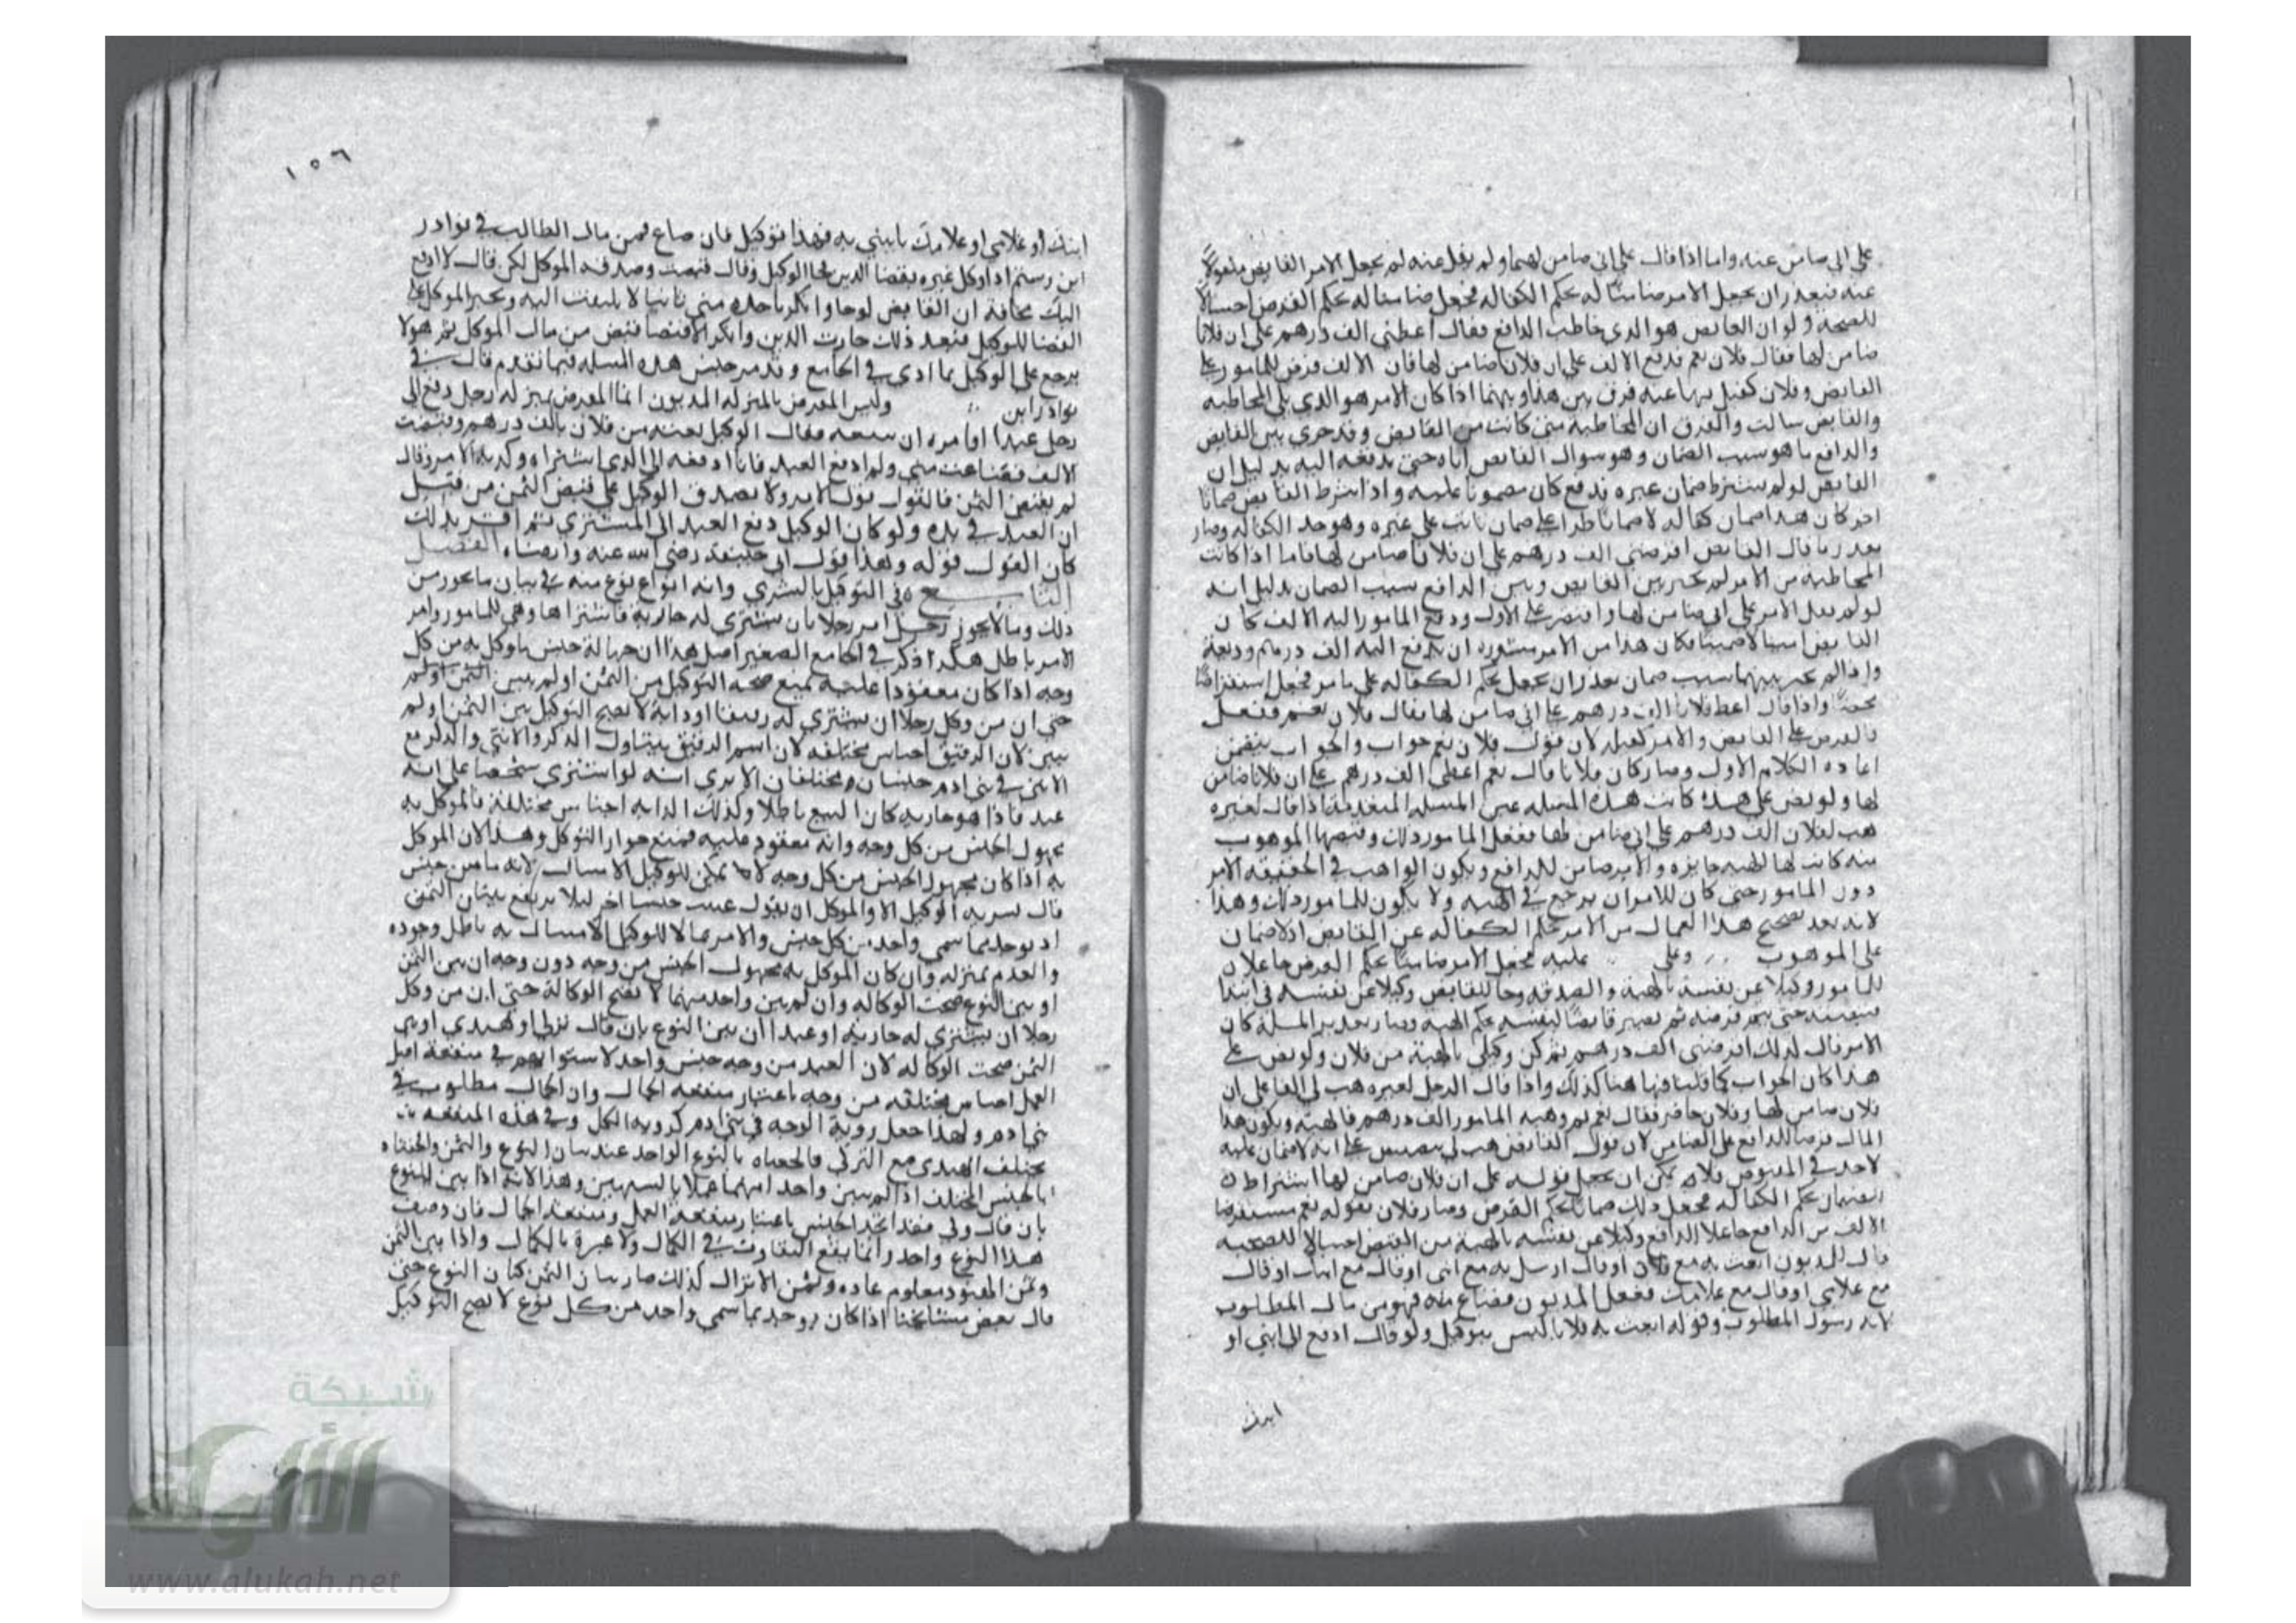 على اني ضامن عنه واما اذا قال على اني ضامن لها ولم يقل عنه لم يجعل الامر القابض
عنه فتعذر ان يجعل الامر ضامنا له بحكم الكفالة فجعل ضامنا له بحكم القرض احتيالا
للصحة ولو ان القابض هو الذي خاطب الدافع فقال اعطني الف درهم على ان فلانا
ضامن لها فقال فلان نعم فدفع الالف على ان فلانا ضامن لها فان الالف قرض للمامور على
القابض وفلان كفيل بها عنه فرق بين هذا وبينهما اذا كان الامر هو الذي يلي المخاطبة
والقابض ساكت والفرق ان المخاطبة متى كانت من القابض وقد جرى بين القابض
والدافع ما هو سبب الضمان وهو سوال القابض اياه حتى يدفعه اليه بدليل ان
القابض لو لم يشترط ضمان غيره فدفع كان مضمونا عليه واذا شرط القابض ضمانا
اخر كان هذا ضمان كفالة لا ضمانا طرا على ضمان ثابت على غيره وهو حد الكفالة وصار
تقدير ما قال القابض اقرضني الف درهم على ان فلانا ضامن لها فاما اذا كانت
المخاطبة من الامر لم يجر بين القابض وبين الدافع سبب الضمان بدليل انه
لو لم يقل الامر على اني ضامن لها واقتصر على الاول ودفع المامور اليه الالف كان
القابض امينا لا ضمينا فكان هذا من الامر مشورة ان يدفع اليه الف درهم وديعة
واذا لم يجر بينهما سبب ضمان تعذر ان يجعل بحكم الكفالة على ما مر فجعل استقراضا
واذا قال اعط فلانا الف درهم على اني ضامن لها فقال فلان نعم ففعل
فالقرض على القابض والامر كفيل لان قول فلان نعم جواب والجواب يتضمن
اعادة الكلام الاول وصار كان فلانا قال نعم اعطني الف درهم على ان فلانا ضامن
لها ولو نص على هذا كانت هذه المسلة عين المسلة المتقدمة اذا قال لغيره
هب لفلان الف درهم على اني ضامن لها ففعل المامور ذلك وقبضها الموهوب
منه كانت لها الهبة جايزة والامر ضامن للدافع ويكون الواهب في الحقيقة الامر
دون المامور حتى كان للامر ان يرجع في الهبة ولا يكون للمامور ذلك وهذا
لانه تعذر تصحيح هذا الضمان من الامر بحكم الكفالة عن القابض اذ لا ضمان
على الموهوب وعلى عليه فجعل الامر ضامنا بحكم القرض جاعلا ان
للمامور وكيلا عن نفسه بالهبة والصدقة وجاعلا للقابض وكيلا عن نفسه في ابتدا
قبضه حتى يتم قرضه ثم يصير قابضا لنفسه بحكم الهبة وصار تقدير المسلة كان
الامر قال لذلك اقرضني الف درهم ثم كن وكيلي بالهبة من فلان ولو نص على
هذا كان الجواب كما قلنا فيها هنا كذلك واذا قال الرجل لغيره هب لي الفا على ان
فلان ضامن لها وفلان حاضر فقال نعم ثم وهبه المامور الف درهم فالهبة ويكون هذا
المال قرضا للدافع على الضامن لان قول القابض هب لي تنصيص على انه لا ضمان عليه
لاحد في المقبوض فلا يمكن ان يجعل قوله على ان فلان ضامن لها اشتراط
الضمان بحكم الكفالة فجعل ذلك ضمانا بحكم القرض وصار فلان بقوله نعم مستقرضا
الالف من الدافع جاعلا الدافع وكيلا عن نفسه بالهبة من القابض احتيالا للصحة
قال للمديون ابعث به مع فلان او قال ارسل به مع ابني او قال مع ابنك او قال
مع غلامي او قال مع غلامك ففعل المديون فضاع منه فهو من مال المطلوب
لانه رسول المطلوب وقوله ابعث به فلانا ليس بتوكيل ولو قال ادفع الى ابني او
ابنك
١٥٦
ابنك او غلامي او غلامك ياتيني به فهذا توكيل فان ضاع فمن مال الطالب في نوادر
ابن رستم اذا وكل غيره بقضا الدين فجا الوكيل وقال قبضت وصدقه الموكل لكن قال لا ادفع
اليك مخافة ان القابض لو جا وانكر ياخذه مني ثانيا لا يلتفت اليه ويجبر الموكل على
القضا للوكيل فبعد ذلك جا رب الدين وانكر الاقتضا فقبض من مال الموكل ثم هو لا
يرجع على الوكيل بما ادى في الجامع وقد مر جنس هذه المسلة فيما تقدم قال في
نوادر ابن وليس المقرض بالمنزلة المديون انما المقرض بمنزلة رجل دفع الى
رجل عبدا وامره ان يبيعه فقال الوكيل بعته من فلان بالف درهم وقبضت
الالف فضاعت مني ولم ادفع العبد فانا ادفعه الى الذي اشتراه وكذبه الامر وقال
لم يقبض الثمن فالقول قول الامر ولا يصدق الوكيل على قبض الثمن من قبل
ان العبد في يده ولو كان الوكيل دفع العبد الى المشتري ثم اقر بذلك
كان القول قوله وهذا قول ابي حنيفة رضي الله عنه وارضاه الفصل
التاسع في التوكيل بالشرى وانه انواع نوع منه في بيان ما يجوز من
ذلك وما لا يجوز رجل امر رجلا بان يشتري له جارية فاشتراها وهي للمامور وامر
الامر باطل هكذا ذكر في الجامع الصغير اصل هذا ان جهالة جنس ما وكل به من كل
وجه اذا كان معقودا عليه يمنع صحة التوكيل بين الثمن او لم يبين الثمن
حتى ان من وكل رجلا ان يشتري له رقيقا او دابة لا يصح التوكيل بين الثمن او لم
يبين لان الرقيق اجناس مختلفة لان اسم الرقيق يتناول الذكر والانثى والذكر مع
الانثى في بني ادم جنسان مختلفان الا يرى انه لو اشترى شخصا على انه
عبد فاذا هو جارية كان البيع باطلا وكذلك الدابة اجناس مختلفة فالموكل به
مجهول الجنس من كل وجه وانه معقود عليه فمنع جواز التوكل وهذا لان الموكل
به اذا كان مجهول الجنس من كل وجه لا يمكن للوكيل الامتثال لانه ما من جنس
قال نشتريه الوكيل الا والموكل ان يقول عنيت جنسا اخر ليلا يرتفع ببيان الثمن
اذ يوجد بما سمى واحد من كل جنس والامر بما لا للوكيل الامتثال به باطل وجوده
والعدم بمنزلة وان كان الموكل به مجهول الجنس من وجه دون وجه ان بين الثمن
او بين النوع صحت الوكالة وان لم يبين واحد منهما لا تصح الوكالة حتى ان من وكل
رجلا ان يشتري له جارية او عبدا ان بين النوع بان قال تركي او هندي او بين
الثمن صحت الوكالة لان العبد من وجه جنس واحد لاستوايهم في منفعة اصل
العمل اجناس مختلفة من وجه باعتبار منفعة الجمال وان الجمال مطلوب في
بني ادم ولهذا جعل روية الوجه في بني ادم كروية الكل وفي هذه المنفعة
يختلف الهندي مع التركي فالحقناه بالنوع الواحد عند بيان النوع والثمن والحقناه
بالجنس المختلف اذا لم يبين واحدا منهما عملا بالشبهين وهذا لانه اذا بين النوع
بان قال فقد اتحد الجنس باعتبار منفعة العمل ومنفعة الجمال فان وصف
هذا النوع واحد وانما يقع التفاوت في الكمال ولا عبرة بالكمال واذا بين الثمن
وثمن الهنود معلوم عادة وثمن الاتراك كذلك صار بيان الثمن كبيان النوع حتى
قال بعض مشايخنا اذا كان يوجد بما سمى واحد من كل نوع لا يصح التوكيل
شبكة
الألوكة
www.alukah.net